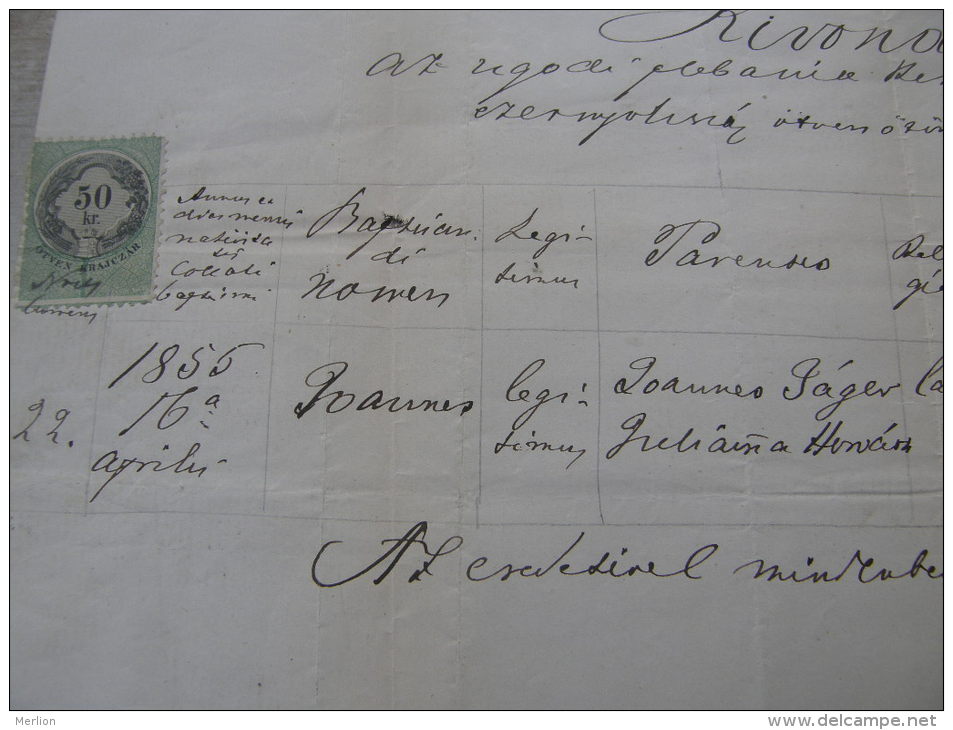 Kivona
Az ugodi plebania ke
ezernyolcszáz ötvenötö
50
kr.
ÖTVEN KRAJCZÁR
Annus et
dies mensis
nativita
tis
Collati
baptismi
Baptizan
di
nomen
Legi-
timus
Parentes
Reli
gi
22.
1855
16a
aprilis
Joannes
legi-
timus
Joannes Jáger
Julianna Horváth
Az eredetivel mindenbe
Merlion
www.delcampe.net